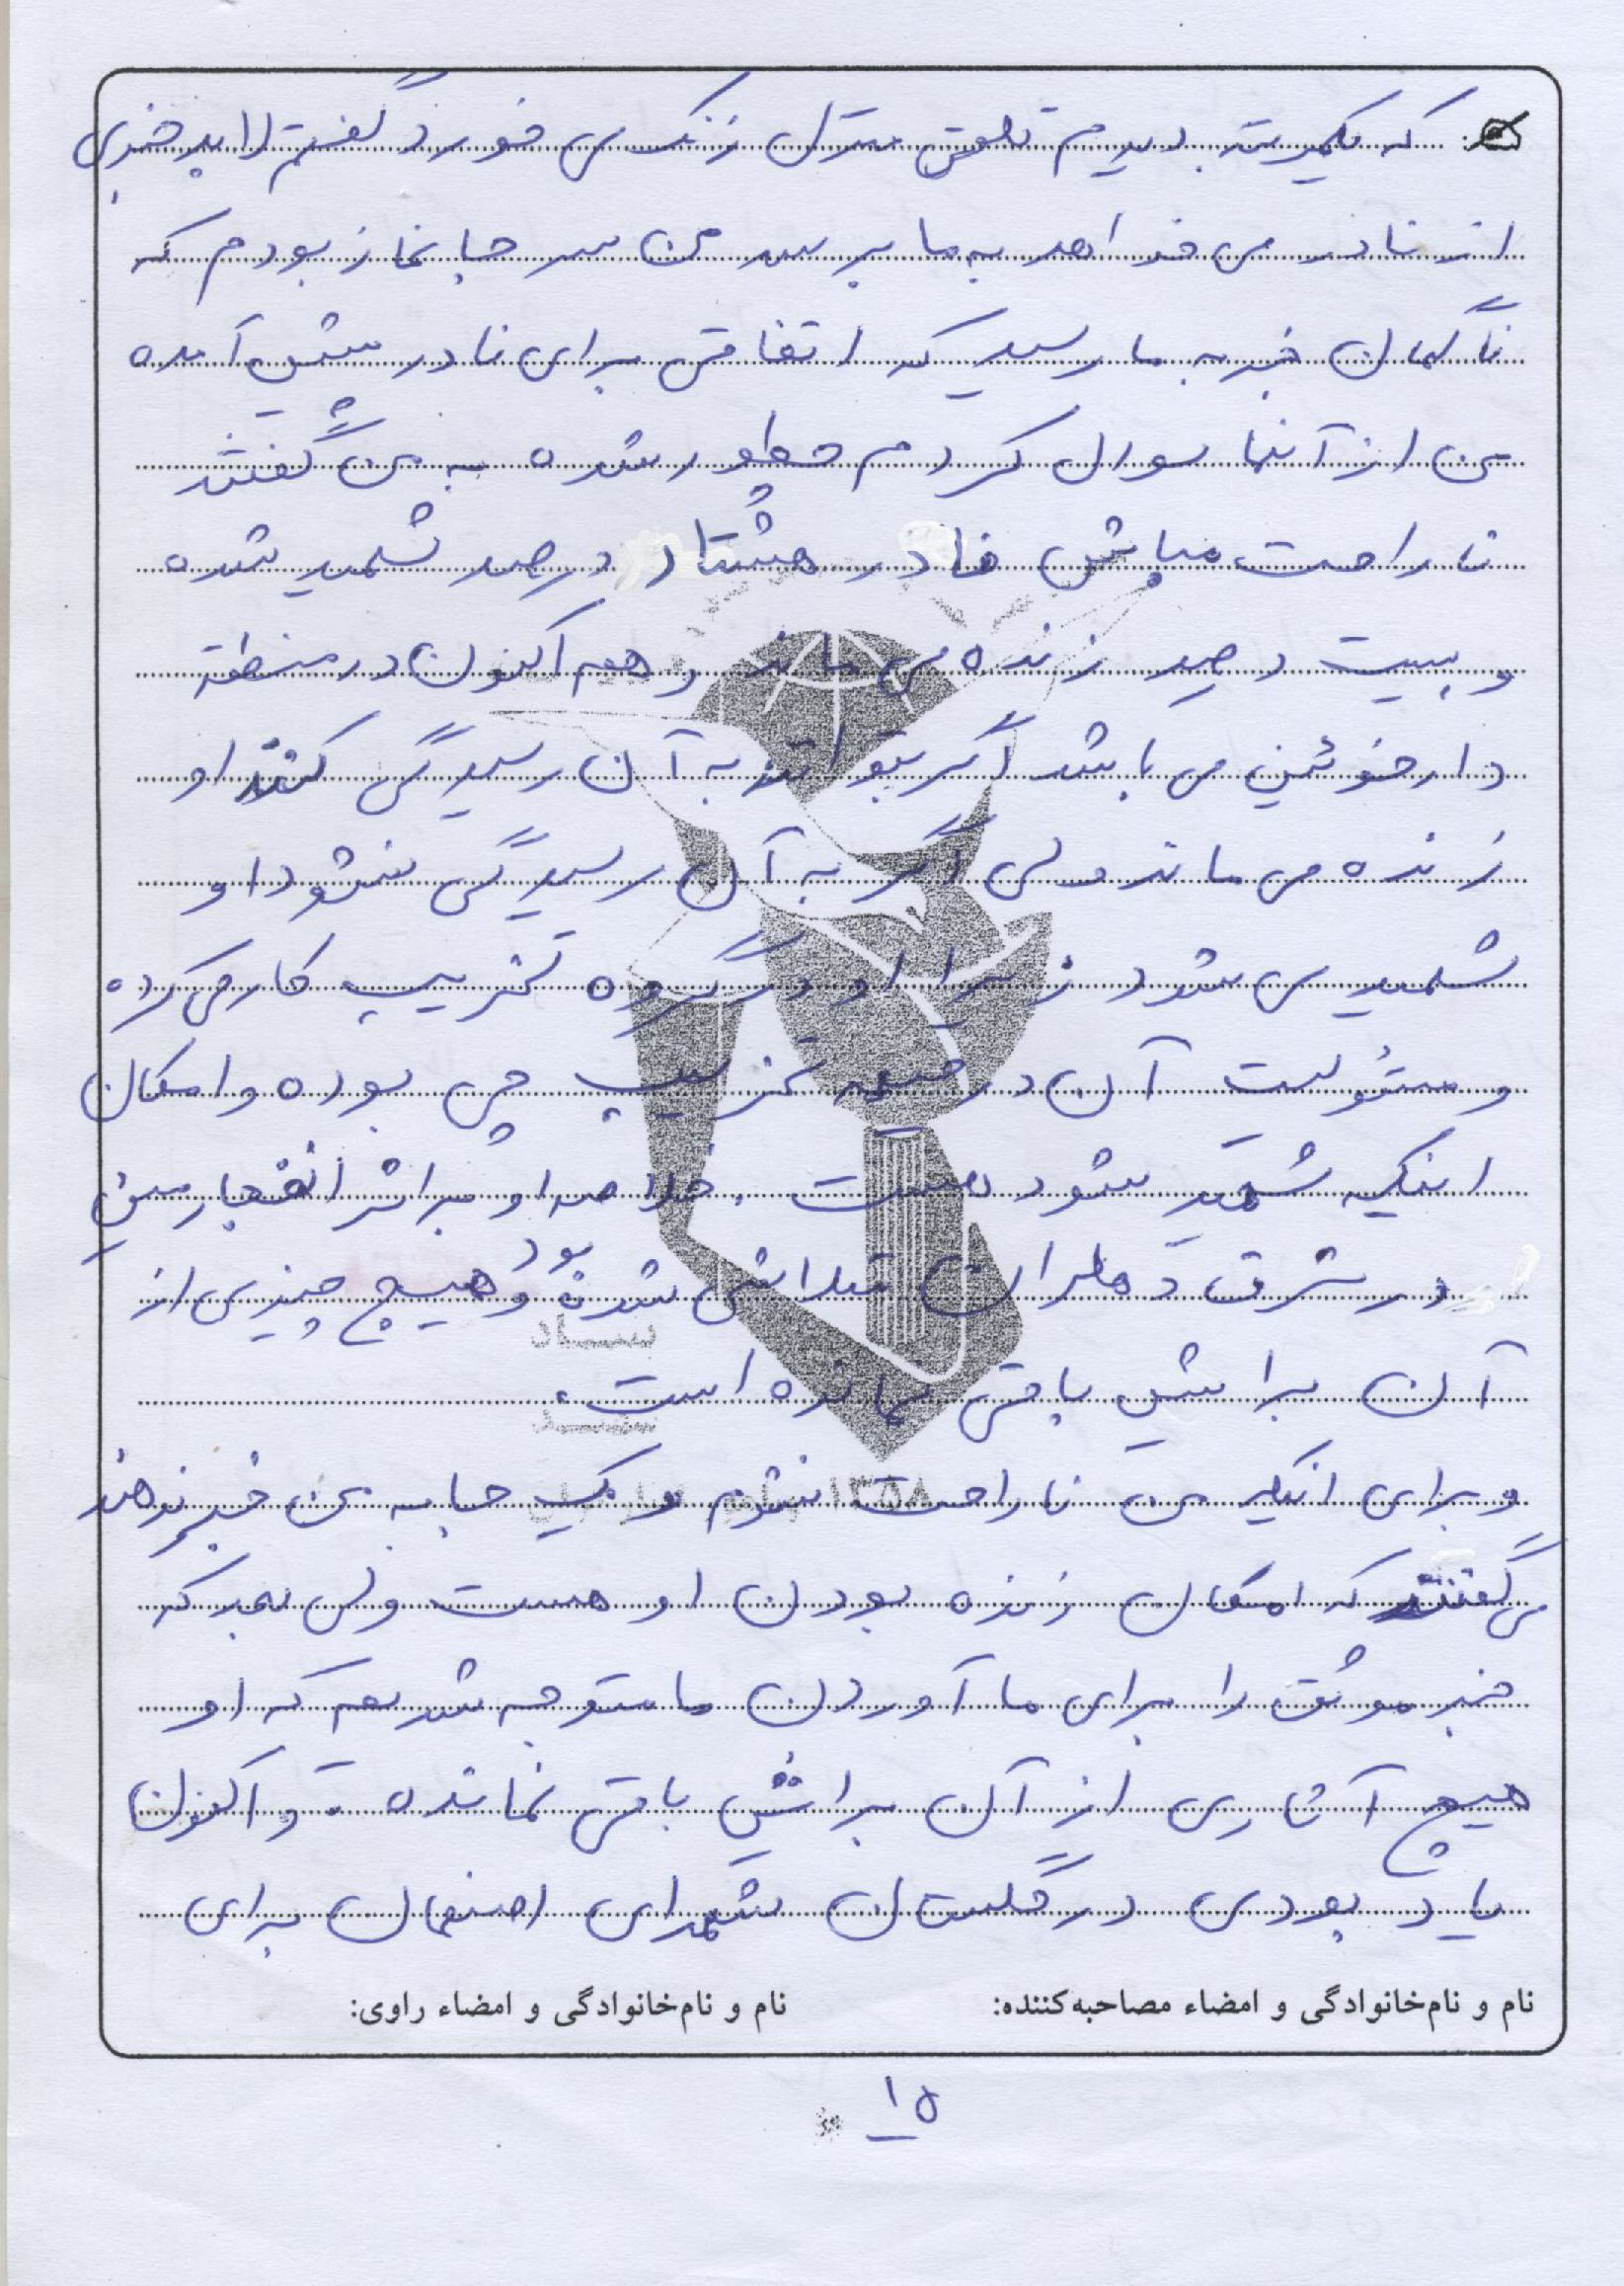 که یکمرتبه دیدیم تلفن منزل زنگ می خورد گفتم لابد خبری
از نادر می خواهد به ما برسد من سر جانماز بودم که
ناگهان خبر به ما رسید که اتفاقی برای نادر پیش آمده
من از آنها سوال کردم چطور شده به من گفتند
ناراحت مباش نادر هشتاد درصد شهید شده
و بیست درصد زنده می ماند و هم اکنون در منطقه
دارخوئین می باشد اگر بتوانند به آن رسیدگی کنند او
زنده می ماند ولی اگر به آن رسیدگی نشود او
شهید می شود زیرا او در گروه تخریب کار می کرده
و مسئولیت آن در تخریب چی بوده و امکان
اینکه شهید شود هست . خلاصه او بر اثر انفجار مین
در شرق دهلران متلاشی شده بود و هیچ چیزی از
آن برایش باقی نمانده است .
و برای اینکه من ناراحت نشوم و یک جا به من خبر ندهند
می گفتند که امکان زنده بودن او هست ولی بعد که
خبر موثق را برای ما آوردن ما متوجه شدیم که او
هیچ آثاری از آن برایش باقی نمانده . و اکنون
یاد بودی در گلستان شهدای اصفهان برای
نام و نام‌خانوادگی و امضاء مصاحبه‌کننده: نام و نام‌خانوادگی و امضاء راوی:
۱۵